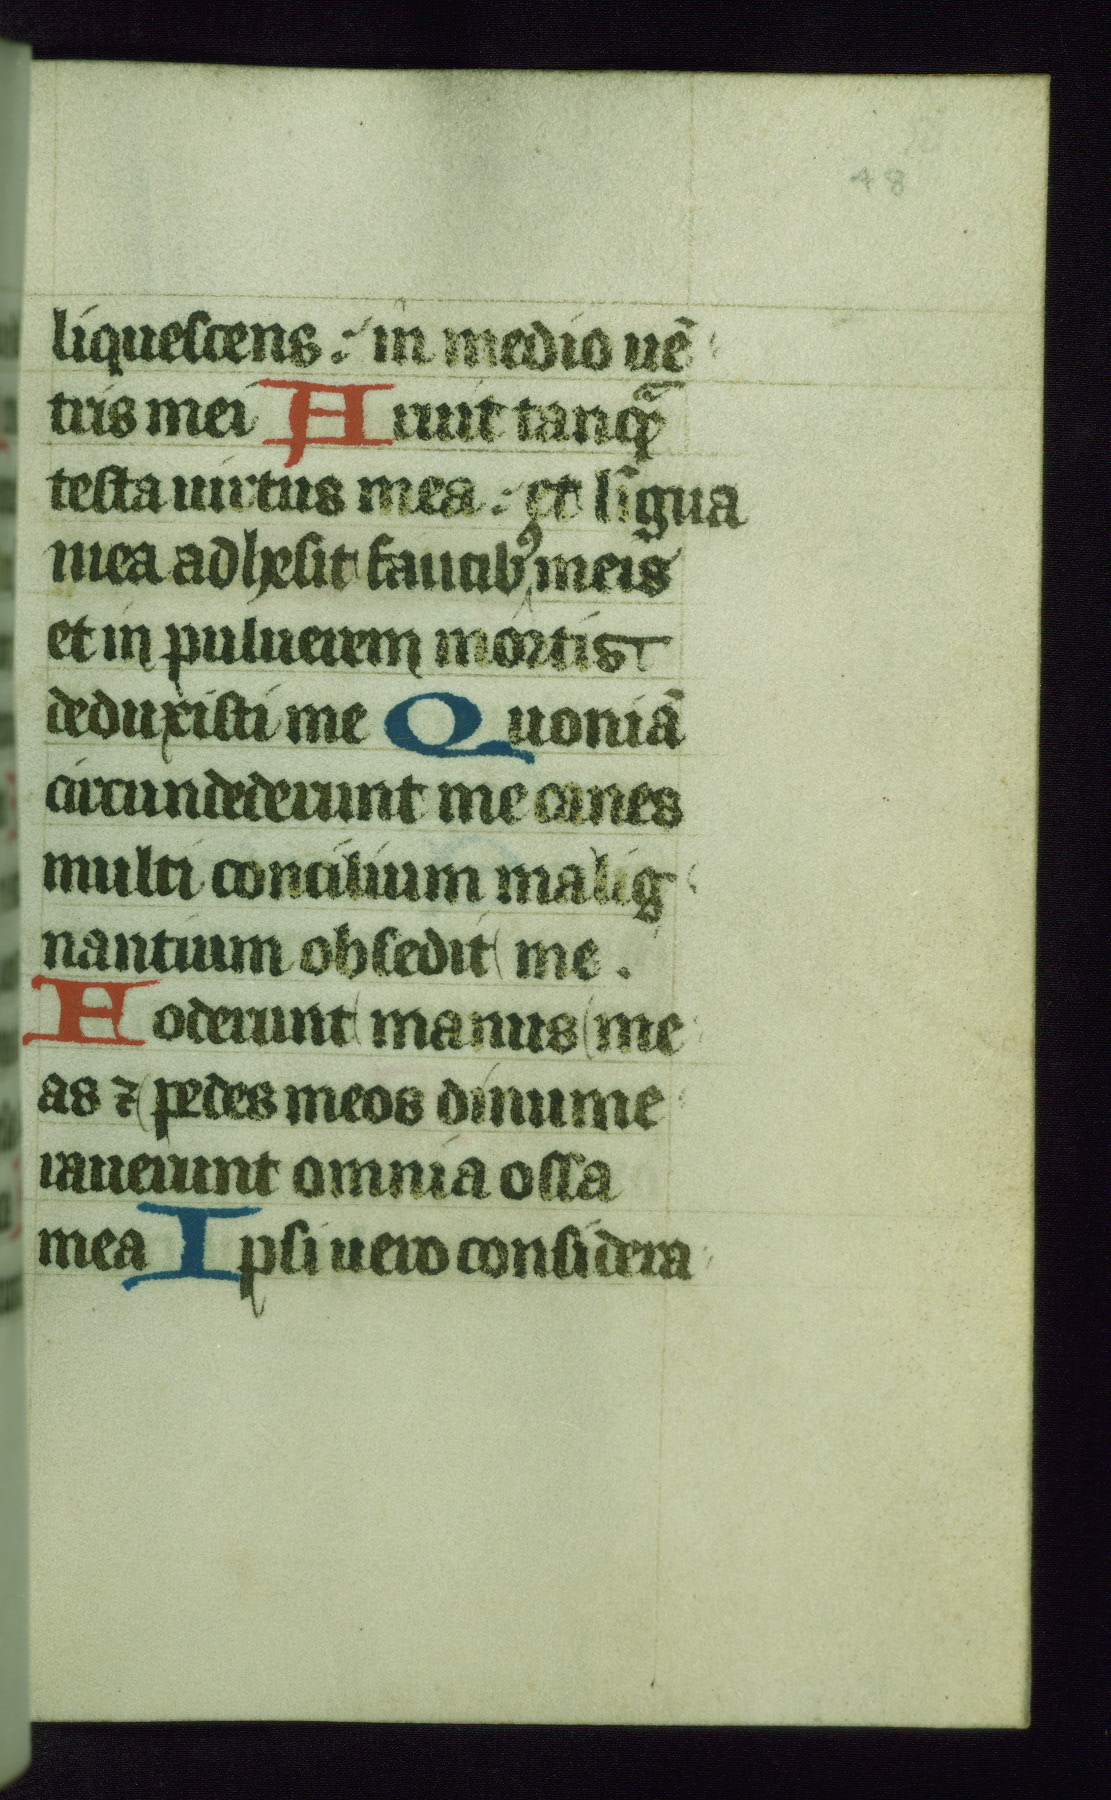 48
liquescens : in medio uē
tris mei Aruit tanq̄
testa uirtus mea : et līgua
mea adhesit faucibꝰ meis
et in puluerem mortis
deduxisti me Quoniā
circundederunt me canes
multi concilium malig
nantium obsedit me .
Foderunt manus me
as ⁊ pedes meos dinume
rauerunt omnia ossa
mea Ipsi uero considera